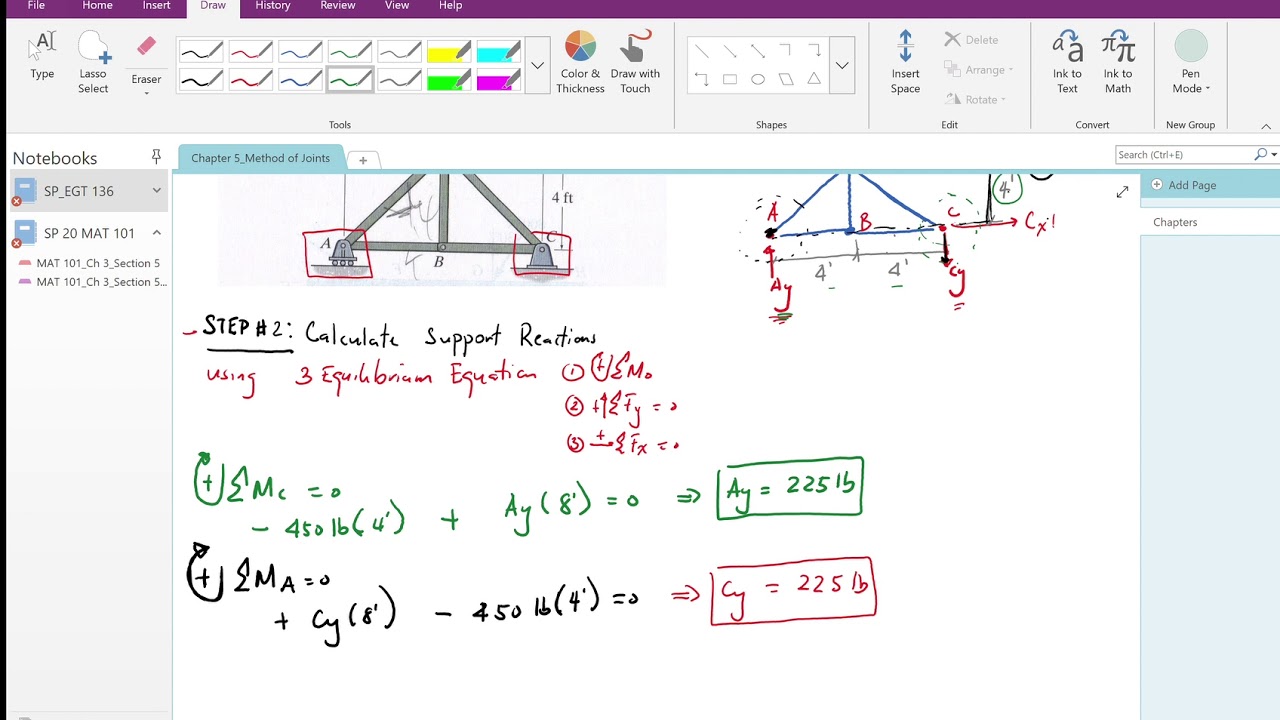 File Home Insert Draw History Review View Help
Type
Lasso Select
Eraser
Color & Thickness
Draw with Touch
Insert Space
Delete
Arrange
Rotate
Ink to Text
Ink to Math
Pen Mode
Tools
Shapes
Edit
Convert
New Group
Notebooks
SP_EGT 136
SP 20 MAT 101
MAT 101_Ch 3_Section 5
MAT 101_Ch 3_Section 5...
Chapter 5_Method of Joints
+
Search (Ctrl+E)
Add Page
Chapters
4 ft
A
B
C
A
B
C
4'
Cx!
4' 4'
Ay
Cy
- STEP #2: Calculate Support Reactions
using 3 Equilibrium Equation ① + ΣMo
② +↑ΣFy = 0
③ +→ΣFx = 0
+ ΣMc = 0
- 450 lb(4') + Ay(8') = 0 ⇒ Ay = 225 lb
+ ΣMA = 0
+ Cy(8') - 450 lb(4') = 0 ⇒ Cy = 225 lb